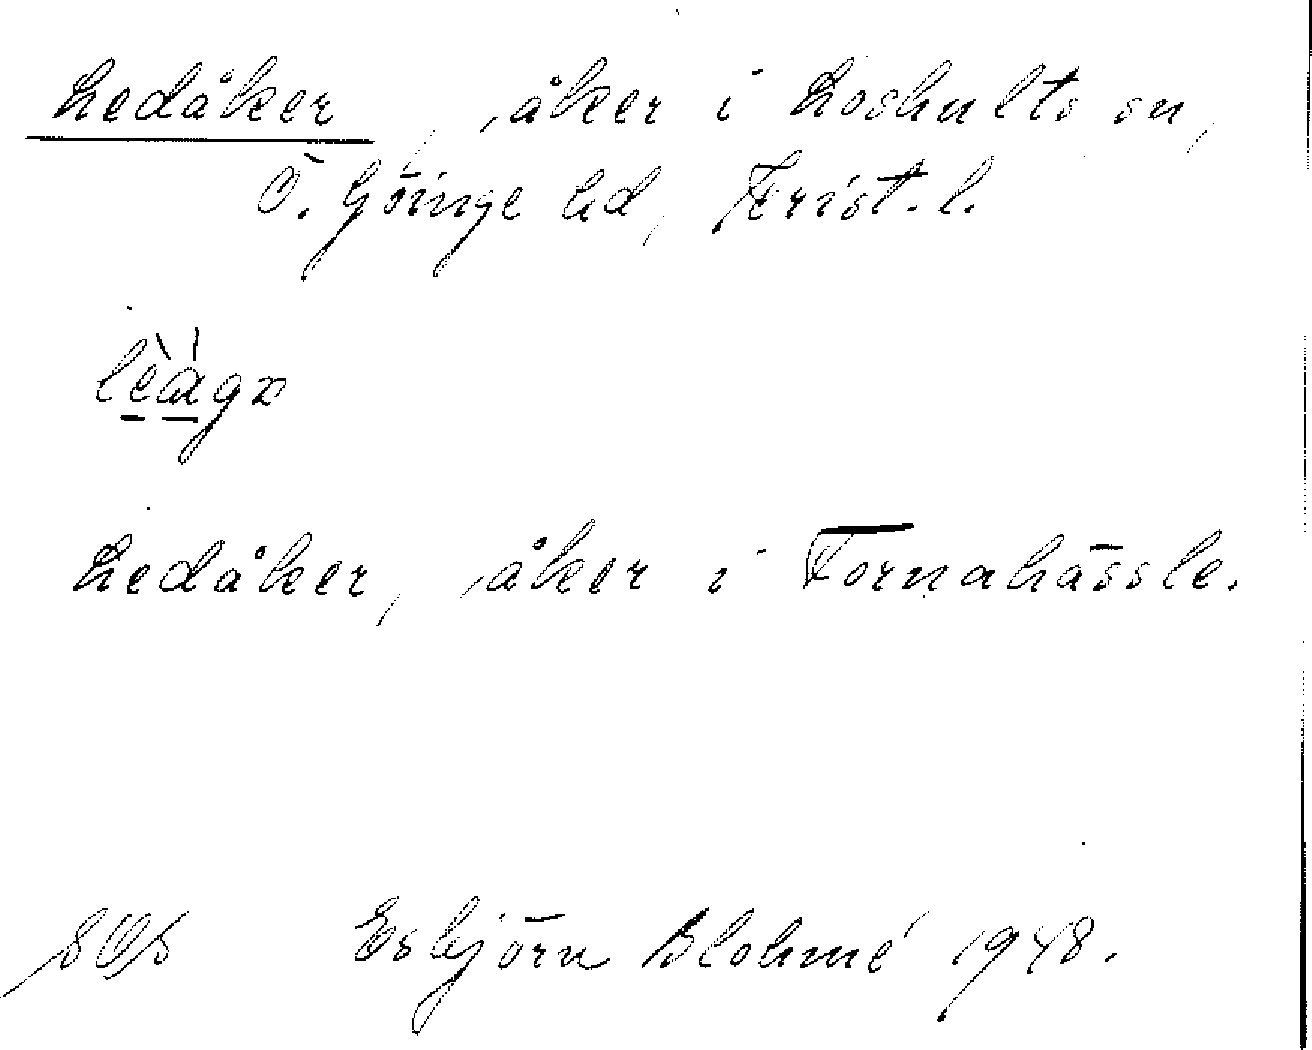 Ledåker, åker i Loshults sn,
Ö. Göinge hd, Krist. l.
lèágx
Ledåker, åker i Tornahässle.
Esbjörn Blohmé 1948.